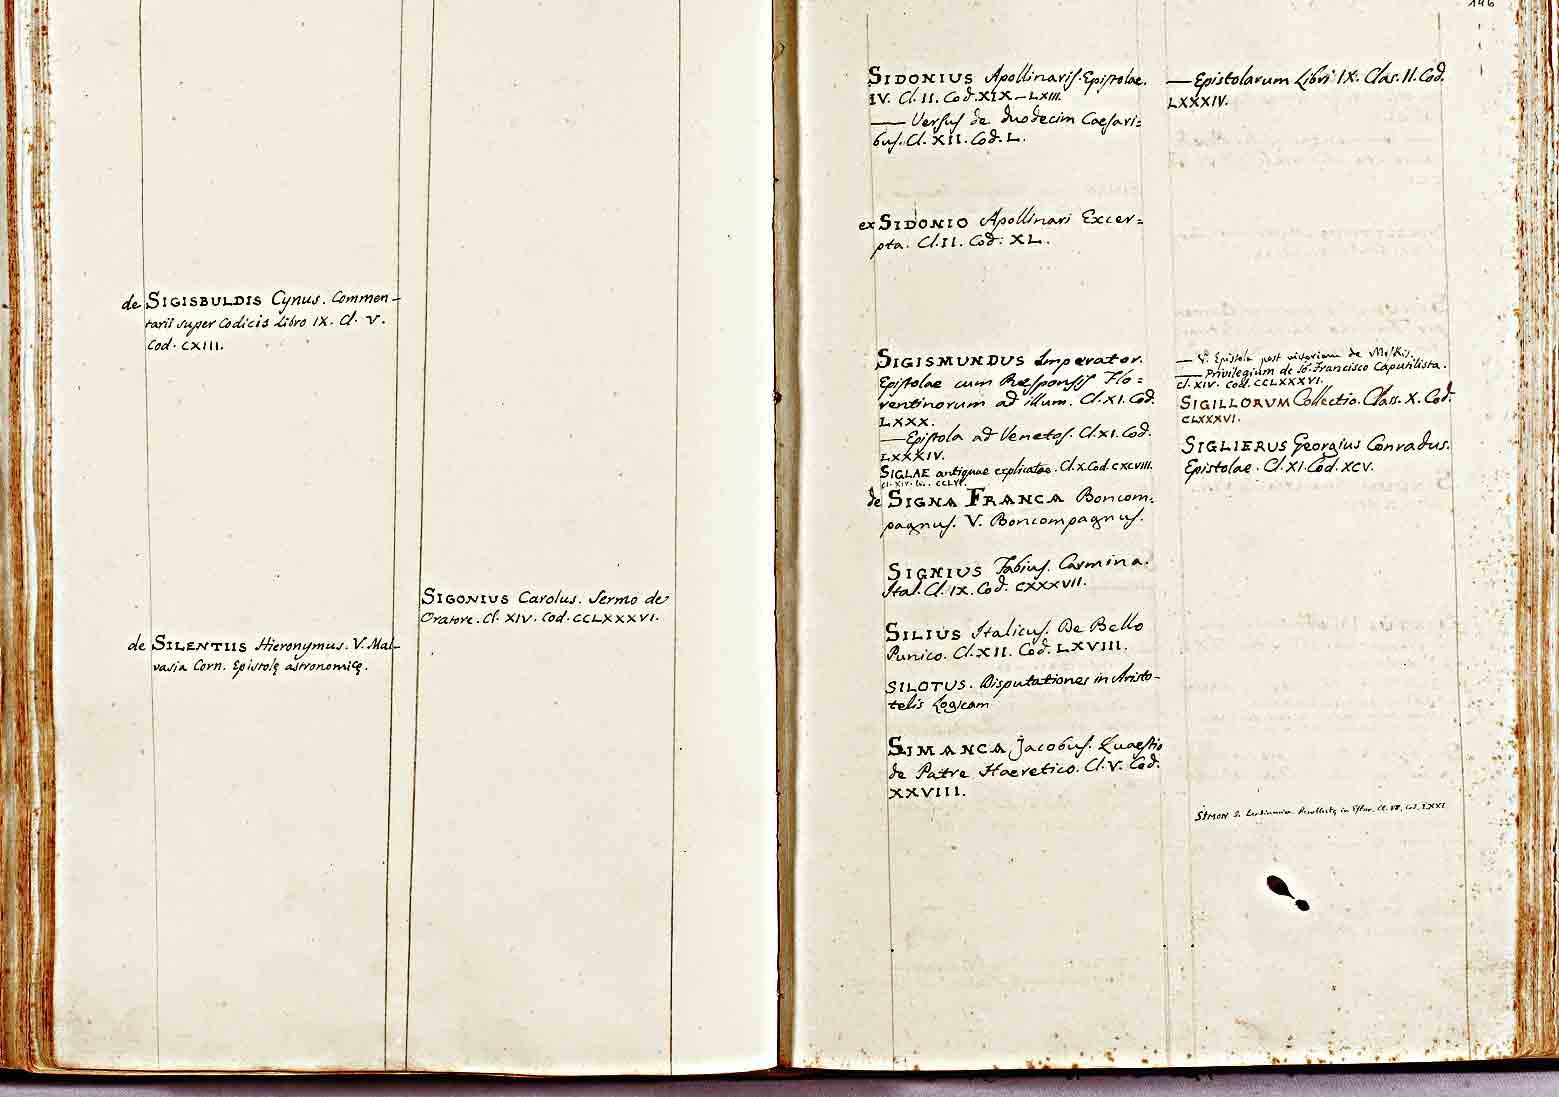 de SIGISBULDIS Cynus. Commen-
tarii super Codicis Libro IX. Cl. V.
Cod. CXIII.
de SILENTIIS Hieronymus. V. Mal-
vasia Corn. Epistolę astronomicę.
SIGONIUS Carolus. Sermo de
Oratore. Cl. XIV. Cod. CCLXXXVI.
146
SIDONIUS Apollinaris. Epistolae.
IV. Cl. II. Cod. XIX–LXIII.
— Versus de duodecim Caesari=
bus. Cl. XII. Cod. L.
ex SIDONIO Apollinari Excer=
pta. Cl. II. Cod. XL.
SIGISMUNDUS Imperator.
Epistolae cum Responsis Flo=
rentinorum ad illum. Cl. XI. Cod.
LXXX.
— Epistola ad Venetos. Cl. XI. Cod.
LXXXIV.
SIGLAE antiquae explicatae. Cl. X. Cod. CXCVIII.
Cl. XIV. CCLVI.
de SIGNA FRANCA Boncom=
pagnus. V. Boncompagnus.
SIGNIUS Fabius. Carmina.
Ital. Cl. IX. Cod. CXXXVII.
SILIUS Italicus. De Bello
Punico. Cl. XII. Cod. LXVIII.
SILOTUS. Disputationes in Aristo-
telis Logicam
SIMANCA Jacobus. Quaestio
de Patre Haeretico. Cl. V. Cod.
XXVIII.
— Epistolarum Libri IX. Clas. II. Cod.
LXXXIV.
— V. Epistola post victoriam de
— Privilegium de Jo. Francisco Caputilista.
Cl. XIV. Cod. CCLXXXVI.
SIGILLORUM Collectio. Class. X. Cod.
CLXXXVI.
SIGLIERUS Georgius Conradus.
Epistolae. Cl. XI. Cod. XCV.
SIMON in Cl. VII. Cod. LXXI